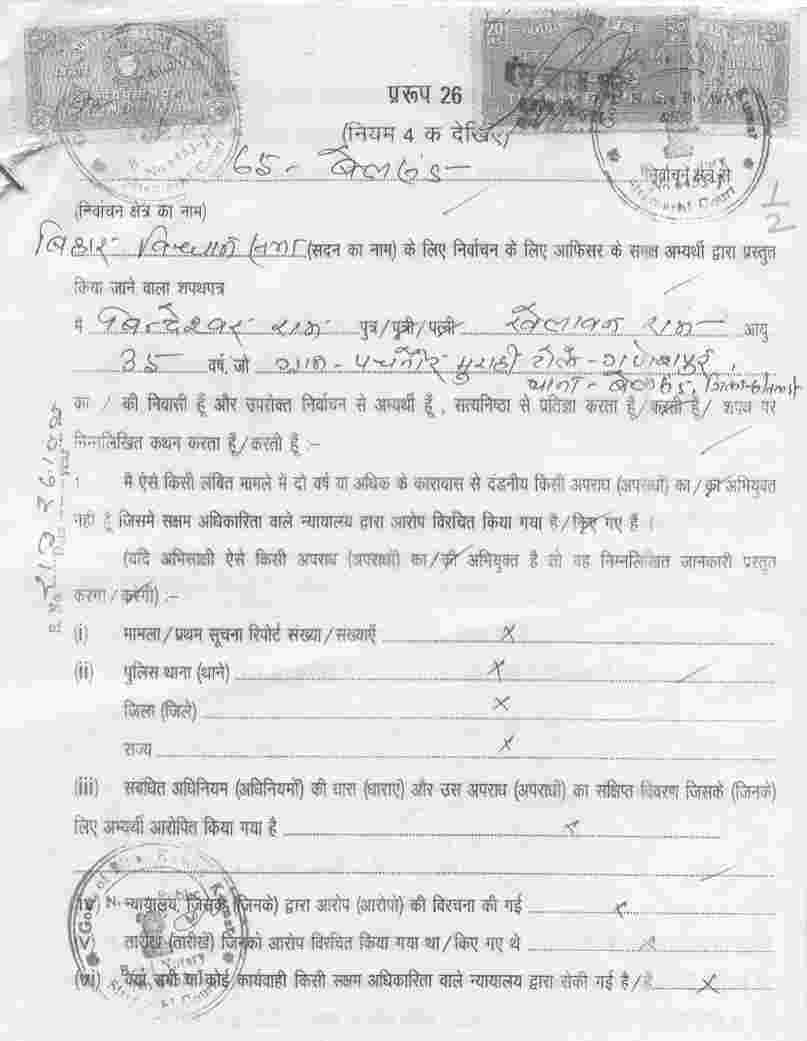 प्ररूप 26
(नियम 4 क देखिए)
65 - बेलसंड निर्वाचन क्षेत्र से
(निर्वाचन क्षेत्र का नाम)
बिहार विधान सभा (सदन का नाम) के लिए निर्वाचन के लिए आफिसर के समक्ष अभ्यर्थी द्वारा प्रस्तुत
किया जाने वाला शपथपत्र
मैं बिन्देश्वर राम पुत्र/पुत्री/पत्नी खेलावन राम आयु
35 वर्ष, जो ग्राम - पचनौर मुसही टोले -
थाना - बेलसंड,
का / की निवासी हूँ और उपरोक्त निर्वाचन से अभ्यर्थी हूँ, सत्यनिष्ठा से प्रतिज्ञा करता हूँ/करती हूँ/ शपथ पर
निम्नलिखित कथन करता हूँ/करती हूँ :-
1 मैं ऐसे किसी लंबित मामले में दो वर्ष या अधिक के कारावास से दंडनीय किसी अपराध (अपराधों) का/की अभियुक्त
नहीं हूँ जिसमें सक्षम अधिकारिता वाले न्यायालय द्वारा आरोप विरचित किया गया है/किए गए हैं ।
(यदि अभिसाक्षी ऐसे किसी अपराध (अपराधों) का/की अभियुक्त है तो वह निम्नलिखित जानकारी प्रस्तुत
करेगा/करेगी) :-
(i) मामला/प्रथम सूचना रिपोर्ट संख्या/संख्याएँ x
(ii) पुलिस थाना (थाने) x
जिला (जिले) x
राज्य x
(iii) संबंधित अधिनियम (अधिनियमों) की धारा (धाराएं) और उस अपराध (अपराधों) का संक्षिप्त विवरण जिसके (जिनके)
लिए अभ्यर्थी आरोपित किया गया है x
(iv) न्यायालय, जिसके (जिनके) द्वारा आरोप (आरोपों) की विरचना की गई x
तारीख (तारीखें) जिनको आरोप विरचित किया गया था/किए गए थे x
(vi) क्या सभी या कोई कार्यवाही किसी सक्षम अधिकारिता वाले न्यायालय द्वारा रोकी गई है/हैं x